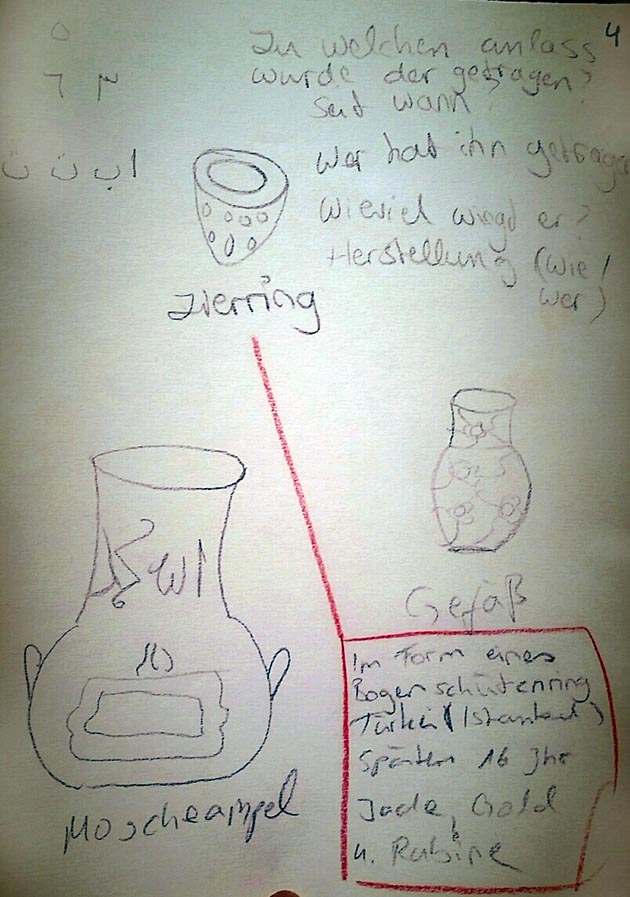 4
Zu welchen anlass
wurde der getragen?
seit wann?
Wer hat ihn getragen
Wieviel wiegt er?
Herstellung (wie/
wer)
ا ب ت ث
Zierring
Gefäß
Im Form eines
Bogenschützenring
Türkei (Istanbul)
Späten 16 Jhr
Jade, Gold
u. Rubine
Moscheeampel